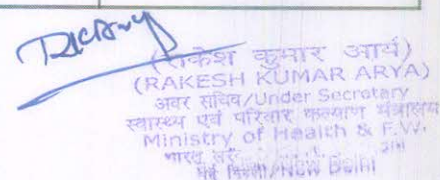 (राकेश कुमार आर्य)
(RAKESH KUMAR ARYA)
अवर सचिव/Under Secretary
स्वास्थ्य एवं परिवार कल्याण मंत्रालय
Ministry of Health & F.W.
भारत
नई दिल्ली/New Delhi